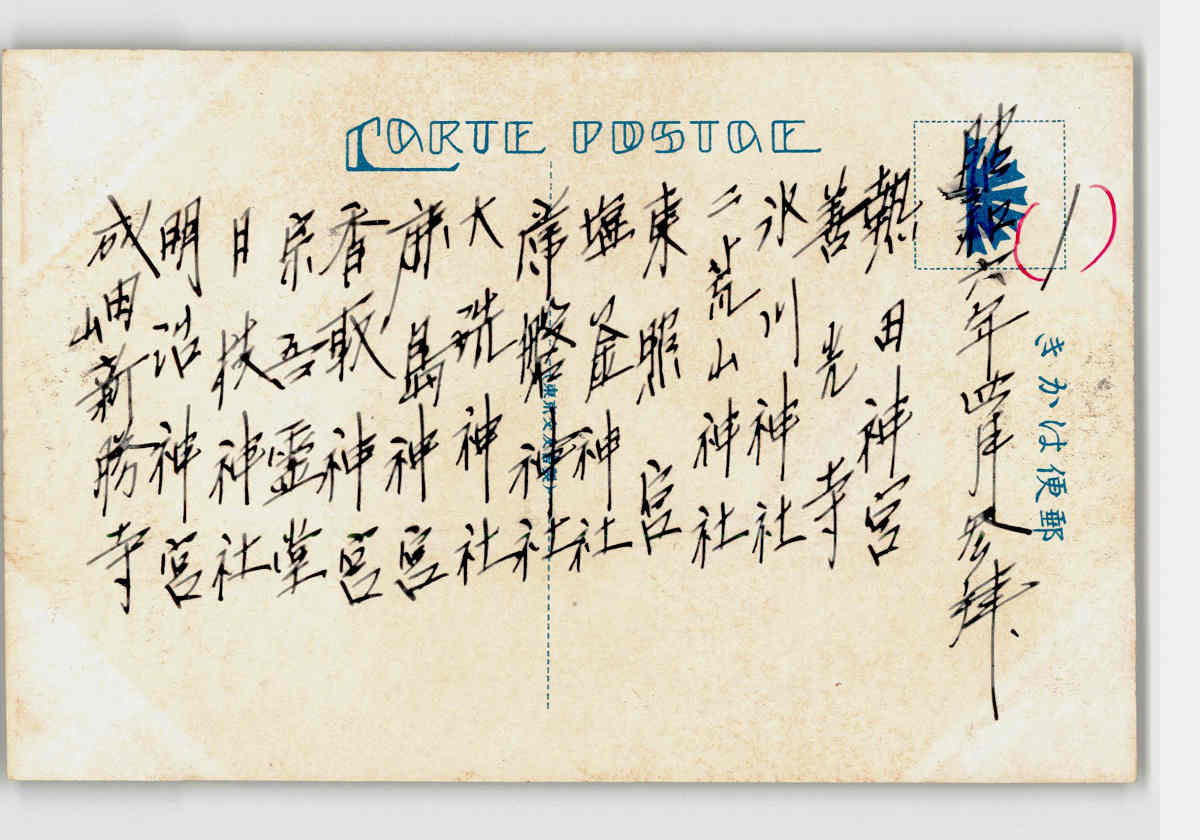 CARTE POSTALE
きかは便郵
昭和六年四月参拝、
熱田神宮
善光寺
氷川神社
二荒山神社
東照宮
塩釜神社
常磐神社
大洗神社
鹿島神宮
香取神宮
宗吾霊堂
日枝神社
明治神宮
成田山新勝寺